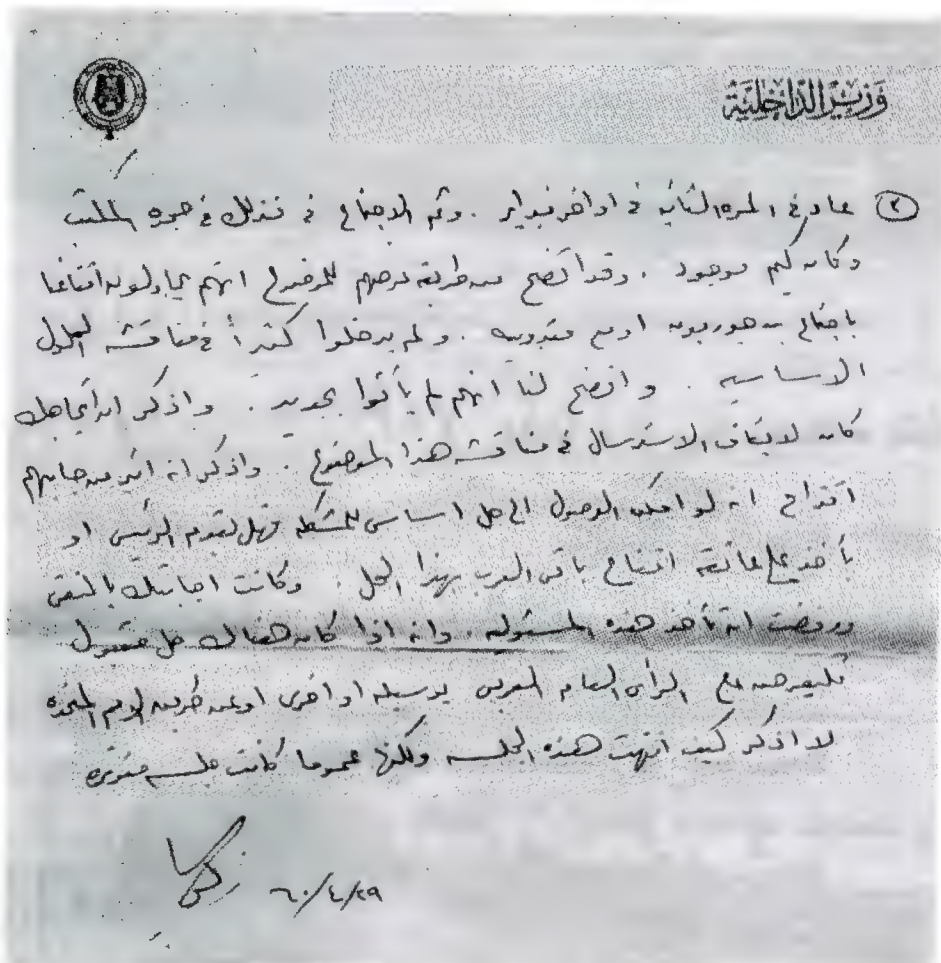 وزير الداخلية
٢ عاد في المره الثانيه في اواخر فبراير . وتم الاجتماع في منزلك في حجرة المكتب
وكان كيم موجود . وقد اتضح من طريقة عرضهم للموضوع انهم يحاولون اقناعنا
باجتماع بن جوريون او مع مندوبيه . ولم يدخلوا كثيراً في مناقشة الحلول
الاساسيه . واتضح لنا انهم لم يأتوا بجديد . واذكر ان اتجاهك
كان لايقاف الاسترسال في مناقشة هذا الموضوع . واذكر انه اثير من جانبهم
اقتراح انه لو امكن الوصول الى حل اساسي للمشكله فهل يقوم الرئيس او
يأخذ على عاتقه اقناع باقي العرب بهذا الحل . وكانت اجابتك بالنفي
ورفضت ان تأخذ هذه المسئوليه . وانه اذا كان هناك حل مقبول
فليعرض على الرأى العام العربى بوسيله او اخرى او عن طريق الامم المتحده
لا اذكر كيف انتهت هذه الجلسه ولكنها عموما كانت جلسه
زكريا
٦٠/٤/٢٩